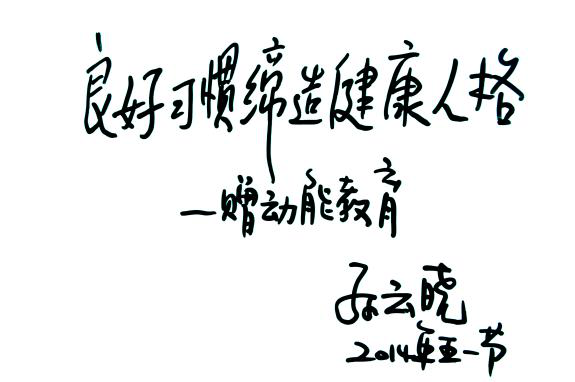 良好习惯缔造健康人格
—赠动能教育
孙云晓
2014年五一节